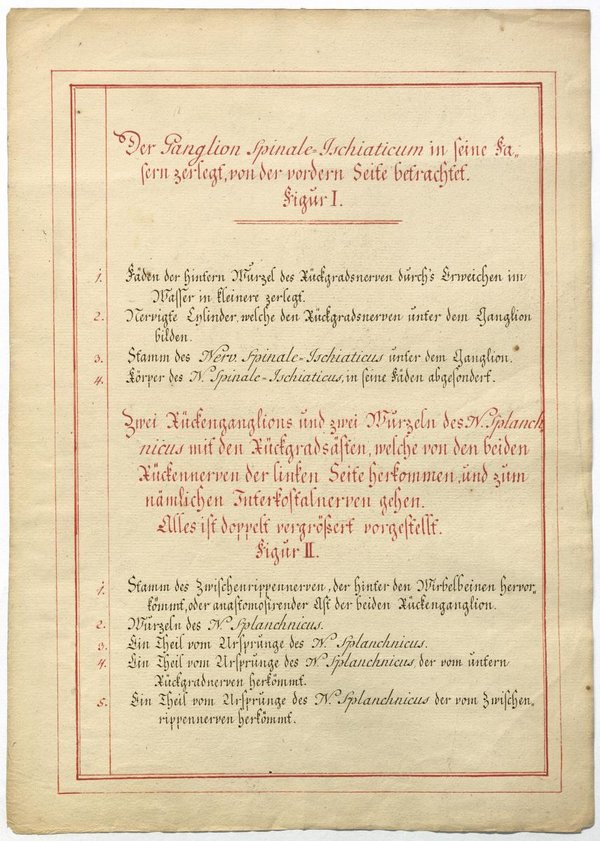 Der Ganglion Spinale-Ischiaticum in seine Fa-
sern zerlegt, von der vordern Seite betrachtet.
Figur I.
1. Fäden der hintern Wurzel des Rückgradsnerven durch's Erweichen im
Wasser in kleinere zerlegt.
2. Nervigte Cylinder, welche den Rückgradsnerven unter dem Ganglion
bilden.
3. Stamm des Nerv. Spinale-Ischiaticus unter dem Ganglion.
4. Körper des N. Spinale-Ischiaticus, in seine Fäden abgesondert.
Zwei Rückenganglions und zwei Wurzeln des N. Splanch
nicus mit den Rückgradsästen, welche von den beiden
Rückennerven der linken Seite herkommen, und zum
nämlichen Interkostalnerven gehen.
Alles ist doppelt vergrößert vorgestellt.
Figur II.
1. Stamm des Zwischenrippennerven, der hinter den Wirbelbeinen hervor-
kömmt, oder anastomosirender Ast der beiden Rückenganglion.
2. Wurzeln des N. Splanchnicus.
3. Ein Theil vom Ursprunge des N. Splanchnicus.
4. Ein Theil vom Ursprunge des N. Splanchnicus, der vom untern
Rückgradnerven herkömmt.
5. Ein Theil vom Ursprunge des N. Splanchnicus der vom Zwischen-
rippennerven herkömmt.